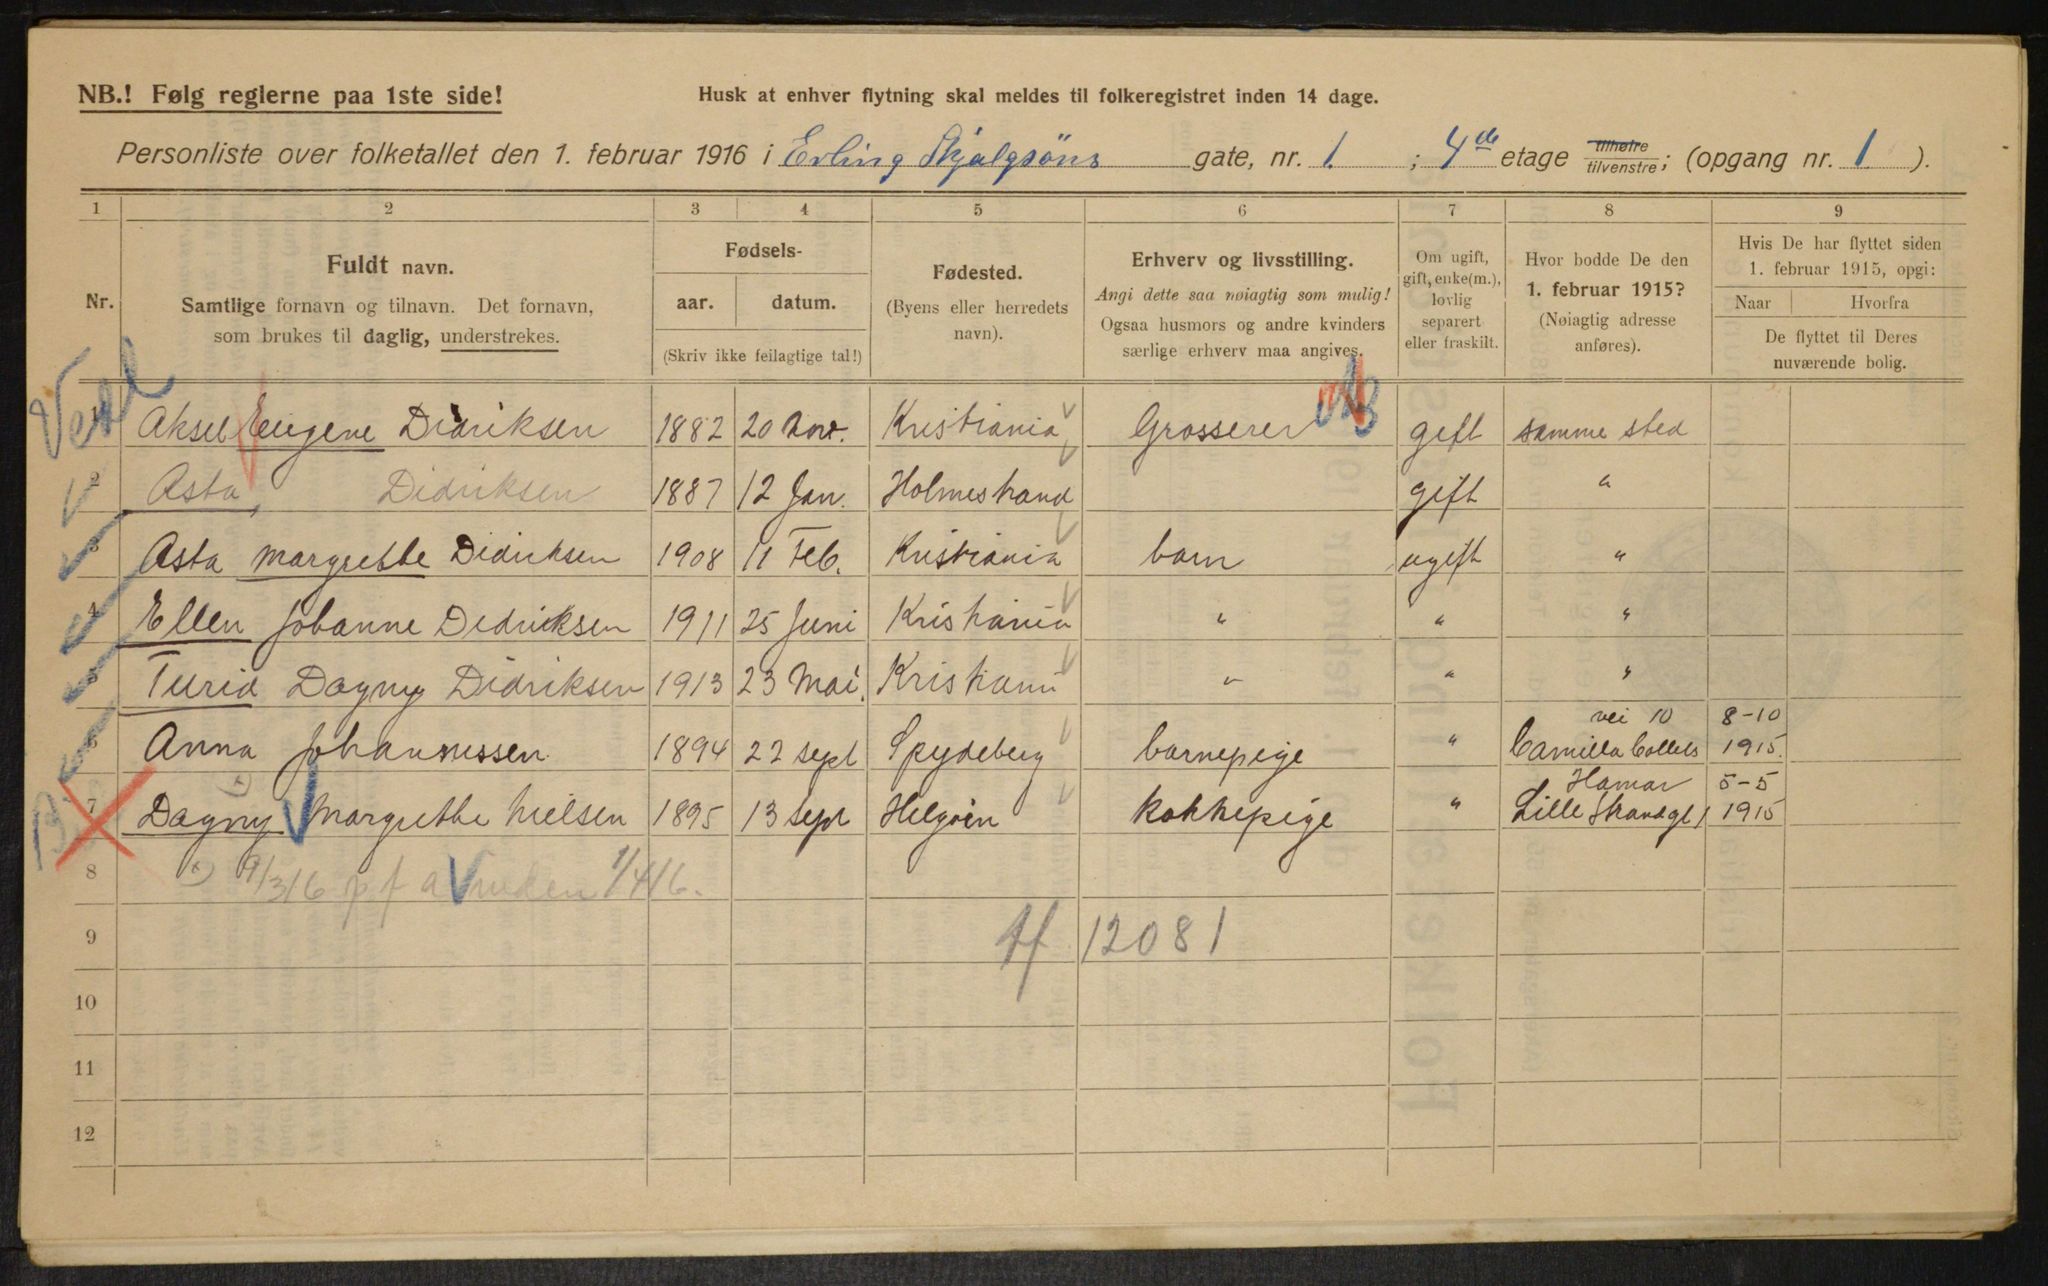 NB.! Følg reglerne paa 1ste side!
Husk at enhver flytning skal meldes til folkeregistret inden 14 dage.
Personliste over folketallet den 1. februar 1916 i Erling Skjalgsöns gate, nr. 1. ; 4de etage tilhøire tilvenstre; (opgang nr. 1 ).
1 2 3 4 5 6 7 8 9
Nr.
Fuldt navn.
Samtlige fornavn og tilnavn. Det fornavn,
som brukes til daglig, understrekes.
Fødsels-
aar. datum.
(Skriv ikke feilagtige tal!)
Fødested.
(Byens eller herredets
navn).
Erhverv og livsstilling.
Angi dette saa nøiagtig som mulig!
Ogsaa husmors og andre kvinders
særlige erhverv maa angives.
Om ugift,
gift, enke(m.),
lovlig
separert
eller fraskilt.
Hvor bodde De den
1. februar 1915?
(Nøiagtig adresse
anføres).
Hvis De har flyttet siden
1. februar 1915, opgi:
Naar Hvorfra
De flyttet til Deres
nuværende bolig.
1 Aksel Eugene Didriksen 1882 20 Nov. Kristiania Grosserer gift samme sted
2 Asta, Didriksen 1887 12 Jan. Holmestrand gift "
3 Asta Margrethe Didriksen 1908 11 Feb. Kristiania barn ugift "
4 Ellen Johanne Didriksen 1911 25 Juni Kristiania " " "
5 Turid Dagny Didriksen 1913 23 Mai. Kristiania " " "
vei 10 8-10
6 Anna Johannessen 1894 22 sept Spydeberg barnepige " Camilla Colletts 1915.
Hamar 5-5
7 Dagny Margrethe Nielsen 1895 13 sept Helgøen kokkepige " Lille Strandgt 1 1915
8 x) 9/3 16 1/4 16.
9 12081
10
11
12